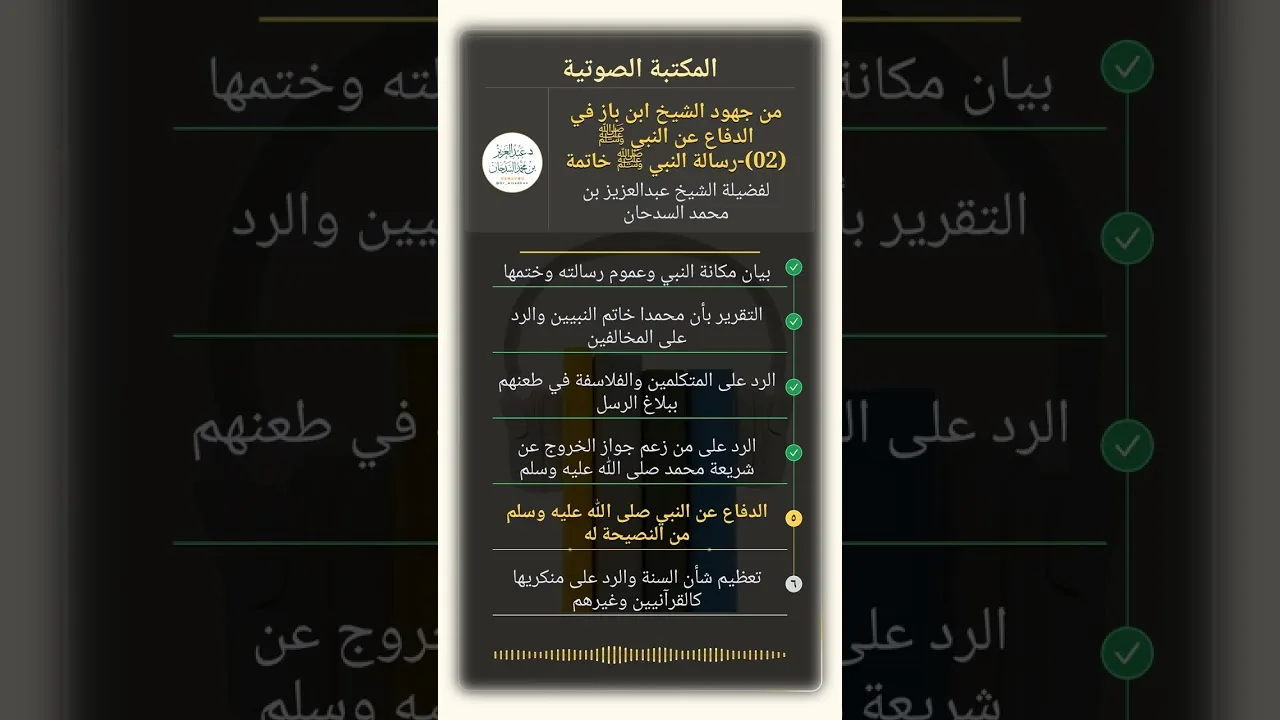 المكتبة الصوتية
من جهود الشيخ ابن باز في
الدفاع عن النبي ﷺ
(02)-رسالة النبي ﷺ خاتمة
لفضيلة الشيخ عبدالعزيز بن
محمد السدحان
د. عبد العزيز
بن محمد السدحان
بيان مكانة النبي وعموم رسالته وختمها
التقرير بأن محمدا خاتم النبيين والرد
على المخالفين
الرد على المتكلمين والفلاسفة في طعنهم
ببلاغ الرسل
الرد على من زعم جواز الخروج عن
شريعة محمد صلى الله عليه وسلم
٥
الدفاع عن النبي صلى الله عليه وسلم
من النصيحة له
٦
تعظيم شأن السنة والرد على منكريها
كالقرآنيين وغيرهم
بيان مكانة
لته وختمها
التقرير ب
يين والرد
الرد على ال
في طعنهم
الرد على
خروج عن
شريعة
ه وسلم